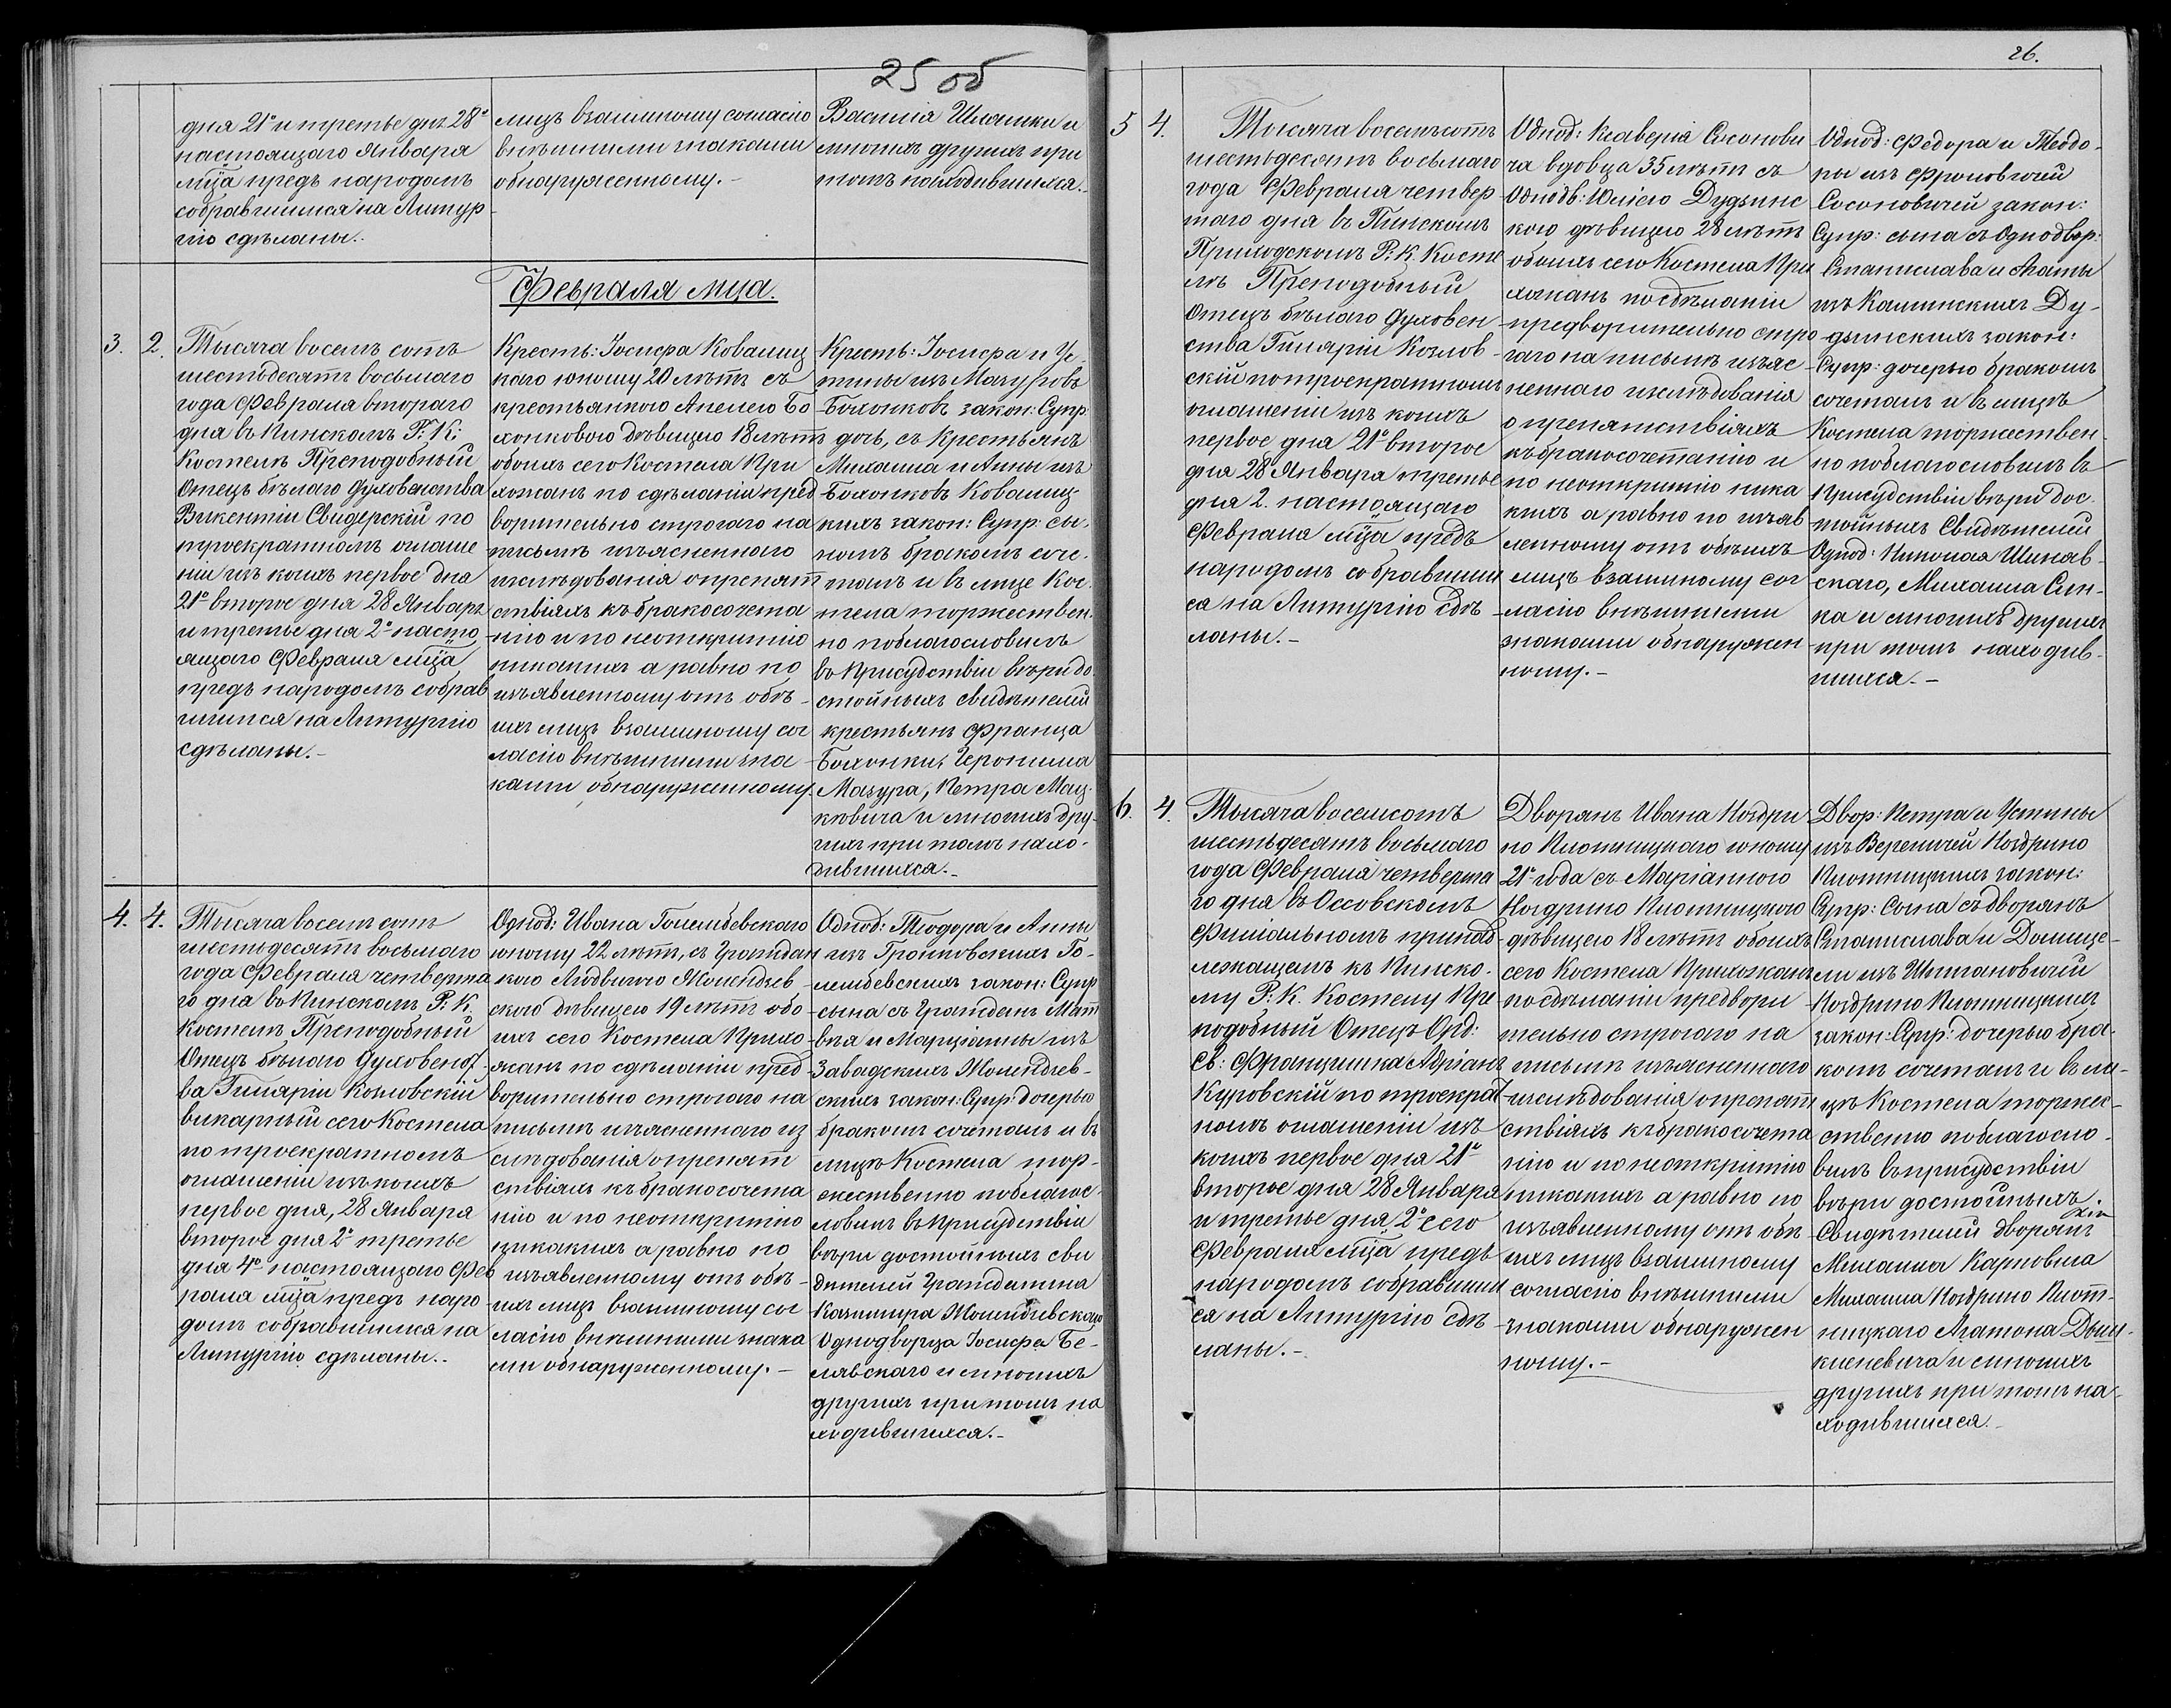 25 об
дня 21º и третье дня 28º
настоящаго Января
мца предъ народомъ
собравшимся на Литур
гію сдѣланы.
лицъ взаимному согласію
внѣшними знаками
обнаруженному.-
Василія Шляшки и
многихъ другихъ при
томъ находившихся.
Февраля мца.
3. 2.
Тысяча восемъ сотъ
шестьдесятъ восьмаго
года Февраля втораго
дня въ Пинскомъ Р: К:
Костелѣ Преподобный
Отецъ бѣлаго Духовенства
Викентій Свидерскій по
троекратномъ оглаше
ніи изъ коихъ первое дня
21º второе дня 28 Января
и третье дня 2º насто
ящаго Февраля мца
предъ народомъ собрав
шимся на Литургію
сдѣланы.-
Кресть: Іосифа Ковалиц
каго юношу 20 лѣтъ съ
крестьянкою Анелею Бо
лонковою дѣвицею 18 лѣтъ
обоихъ сего Костела При
хожанъ по сдѣланіи пред
ворительно строгаго на
письмѣ изъясненнаго
изслѣдованія о препят
ствіяхъ къ бракосочета
нію и по неоткрытію
никакихъ а равно по
изъявленному отъ обѣ-
ихъ лицъ взаимному сог
ласію внѣшними зна
ками обнаруженному.
Кресть: Іосифа и Ус-
тины изъ Мазуровъ
Болонковъ закон: Супр:
дочь, съ Крестьянъ
Михаила и Анны изъ
Болонковъ Ковалиц-
кихъ закон: Супр: сы-
номъ бракомъ соче-
талъ и въ лице Кос-
тела торжествен-
но поблагословилъ
въ Присудствіи вѣри до-
стойныхъ свидѣтелей
крестьянъ Франца
Болонки, Иеронима
Мазура, Петра Мац-
кѣвича и многихъ дру-
гихъ при томъ нахо-
дившихся.-
4. 4.
Тысяча восемъ сотъ
шестьдесятъ восьмаго
года Февраля четверта
го дня въ Пинскомъ Р: К.
Костелѣ Преподобный
Отецъ бѣлаго Духовенст
ва Гиляріи Козловскій
викарный сего Костела
по троекратномъ
оглашеніи изъ коихъ
первое дня, 28 Января
второе дня 2º третье
дня 4º настоящаго Фев
раля мца предъ наро
домъ собравшимся на
Литургію сдѣланы.-
Однод: Ивана Голембевскаго
юношу 22 лѣтъ, съ Граждан
кою Людвигою Жолендзев-
скою дѣвицею 19 лѣтъ обо
ихъ сего Костела Прихо-
жанъ по сдѣланіи пред-
ворительно строгаго на
письмѣ изъясненнаго из
слѣдованія о препят
ствіяхъ къ бракосочета
нію и по неоткрытію
никакихъ а равно по
изъявленному отъ обѣ-
ихъ лицъ взаимному сог
ласію внѣшними знака
ми обнаруженному.-
Однод: Теодора и Анны
изъ Громковскихъ Го-
лембевскихъ закон: Супр
сына съ Гражданъ Мат
вѣя и Марціанны изъ
Завадскихъ Жолендзев-
скихъ закон: Супр: дочерью
бракомъ сочеталъ и въ
лицѣ Костела тор-
жественно поблагос-
ловилъ въ присудствіи
вѣри достойныхъ сви
дѣтелей Гражданина
Казимира Жолендзевскаго
Однодворца Іосифа Бе-
лявскаго и многихъ
другихъ при томъ на
ходившихся.-
26.
5 4.
Тысяча восемъсотъ
шестьдесятъ восьмаго
года Февраля четвер
таго дня въ Пинскомъ
Приходскомъ Р: К. Косте
лѣ Преподобный
Отецъ бѣлаго Духовен
ства Гиляріи Козлов-
скій по троекратномъ
оглашеніи изъ коихъ
первое дня 21º второе
дня 28º Января третье
дня 2. настоящаго
Февраля мца предъ
народомъ собравшим
ся на Литургію сдѣ
ланы.-
Однод: Ксаверія Сосонови
ча вдовца 35 лѣтъ съ
Однодв: Юліею Дудзинс
кою дѣвицею 28 лѣтъ
обоихъ сего Костела При
хожанъ по сдѣланіи
предворительно стро
гаго на письмѣ изъяс
неннаго изслѣдованія
о препятствіяхъ
къ бракосочетанію и
по неоткрытію ника
кихъ а равно по изъяв
ленному отъ обѣихъ
лицъ взаимному сог
ласію внѣшними
знаками обнаружен
ному.-
Однод: Федора и Теодо-
ры изъ Фроловичей
Сосоновичей закон:
Супр: сына съ Однодвор:
Станислава и Агаты
изъ Калинскихъ Ду-
дзинскихъ закон:
Супр: дочерью бракомъ
сочеталъ и въ лицѣ
Костела торжествен-
но поблагословилъ въ
Присудствіи вѣри дос-
тойныхъ Свидѣтелей
Однод: Николая Шиляв-
скаго, Михаила Син-
ка и многихъ другихъ
при томъ находив-
шихся.-
6. 4.
Тысяча восемсотъ
шестьдесятъ восьмаго
года Февраля четверта
го дня въ Оссовскомъ
Филіальномъ принад
лежащемъ къ Пинско-
му Р: К. Костелу Пре
подобный Отецъ Орд:
Св: Францишка Адріанъ
Куровскій по троекрат
номъ оглашеніи изъ
коихъ первое дня 21º
второе дня 28 Января
и третье дня 2º сего
Февраля мца предъ
народомъ собравшим
ся на Литургію сдѣ
ланы.-
Дворянъ Ивана Ноздри
но Плотницкаго юношу
21º года съ Маріанною
Ноздрино Плотницкою
дѣвицею 18 лѣтъ обоихъ
сего Костела Прихожанъ
по сдѣланіи предвори
тельно строгаго на
письмѣ изъясненнаго
изслѣдованія о препят
ствіяхъ къ бракосочета
нію и по неоткрытію
никакихъ а равно по
изъявленному отъ обѣ
ихъ лицъ взаимному
согласію внѣшними
знаками обнаружен
ному.-
Двор: Петра и Устины
изъ Вереничей Ноздрино
Плотницкихъ закон:
Супр: сына съ дворянъ
Станислава и Домице-
ли изъ Шпигановичей
Ноздрино Плотницкихъ
закон: Супр: дочерью бра-
комъ сочеталъ и въ ли-
цѣ Костела торжес-
ственно поблагосло-
вилъ въ присудствіи
вѣри достойныхъ
Свидѣтелей дворянъ
Михаила Карповича
Михаила Ноздрино Плот-
ницкаго Агатона
и многихъ
другихъ при томъ на-
ходившихся.-